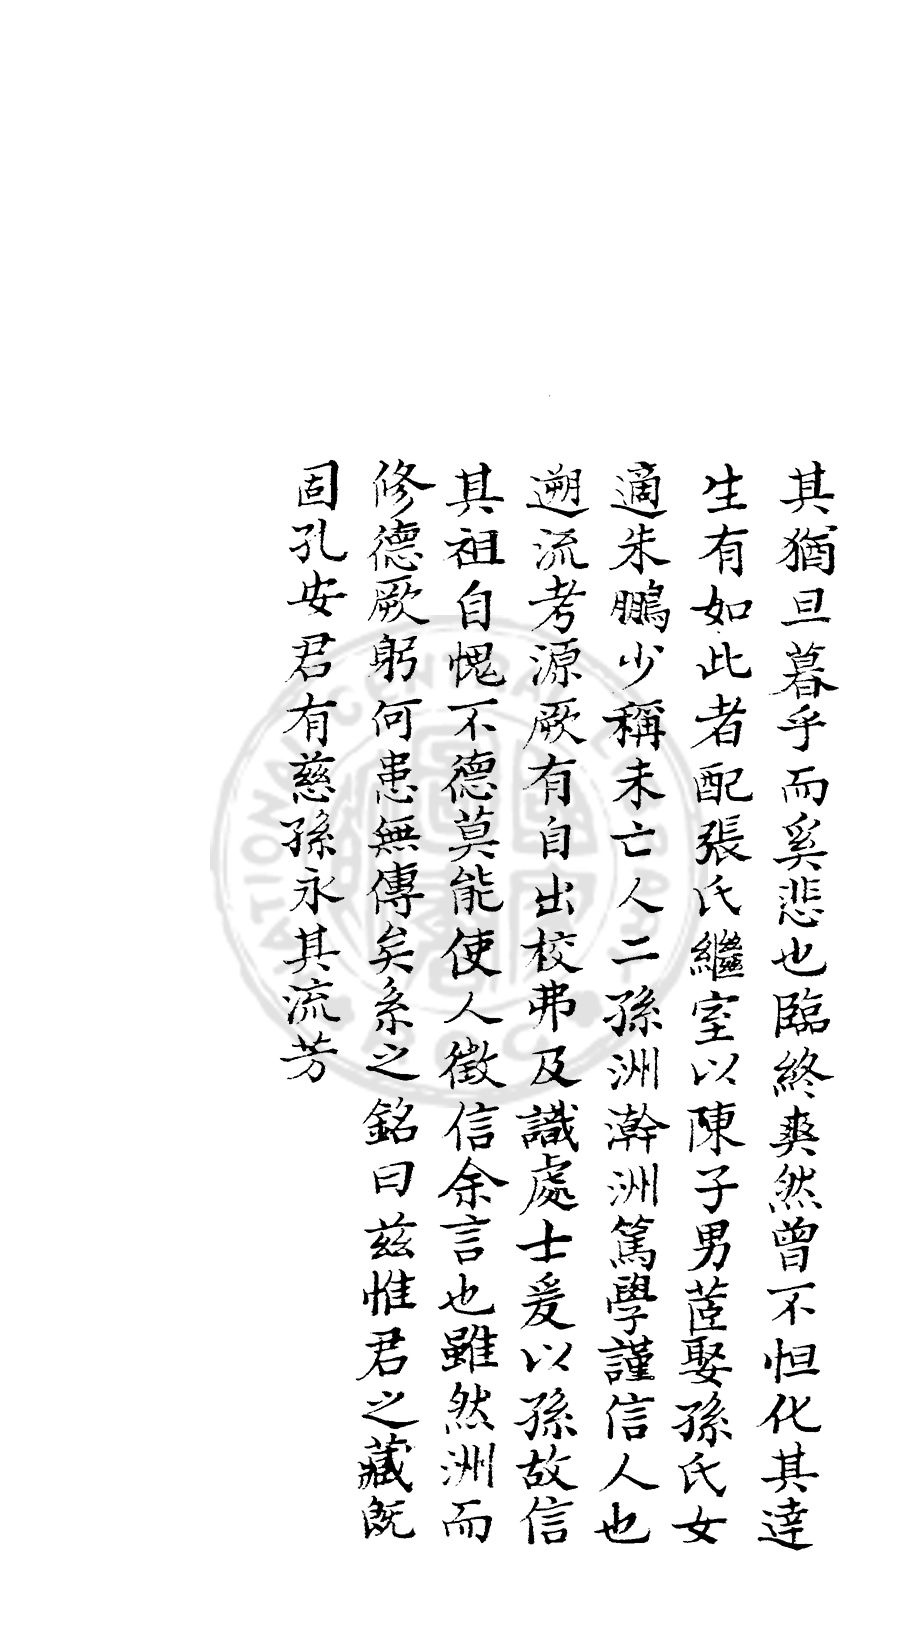 其猶旦暮乎而奚悲也臨終爽然曾不怛化其達
生有如此者配張氏繼室以陳子男茝娶孫氏女
適朱鵬少稱未亡人二孫洲澣洲篤學謹信人也
遡流考源厥有自出校弗及識處士爰以孫故信
其祖自愧不德莫能使人徵信余言也雖然洲而
修德厥躬何患無傳矣系之銘曰兹惟君之藏既
固孔安君有慈孫永其流芳
NATIONAL CENTRAL LIBRARY